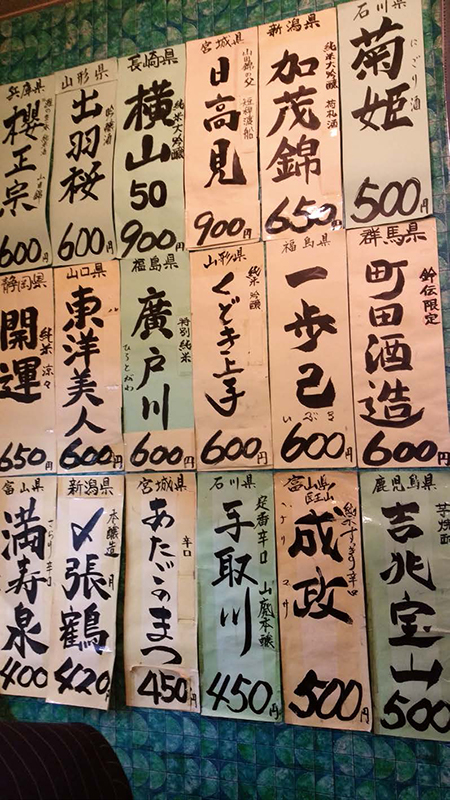 石川県
菊姫
にごり酒
500円
新潟県
純米大吟醸
荷札酒
加茂錦
650円
宮城県
山田錦の父
短稈渡船
日高見
900円
長崎県
純米大吟醸
横山50
900円
山形県
吟醸酒
出羽桜
600円
兵庫県
櫻正宗
600円
群馬県
町田酒造
600円
福島県
一歩己
いぶき
600円
山形県
純米吟醸
くどき上手
600円
福島県
特別純米
廣戸川
ひろとがわ
600円
山口県
東洋美人
600円
静岡県
純米
涼々
開運
650円
鹿児島県
芋焼酎
吉兆宝山
500円
富山県
純米すっきり辛口
成政
500円
石川県
定番辛口
山廃本醸
手取川
450円
宮城県
辛口
あたごのまつ
450円
新潟県
本醸造
月
〆張鶴
420円
富山県
満寿泉
400